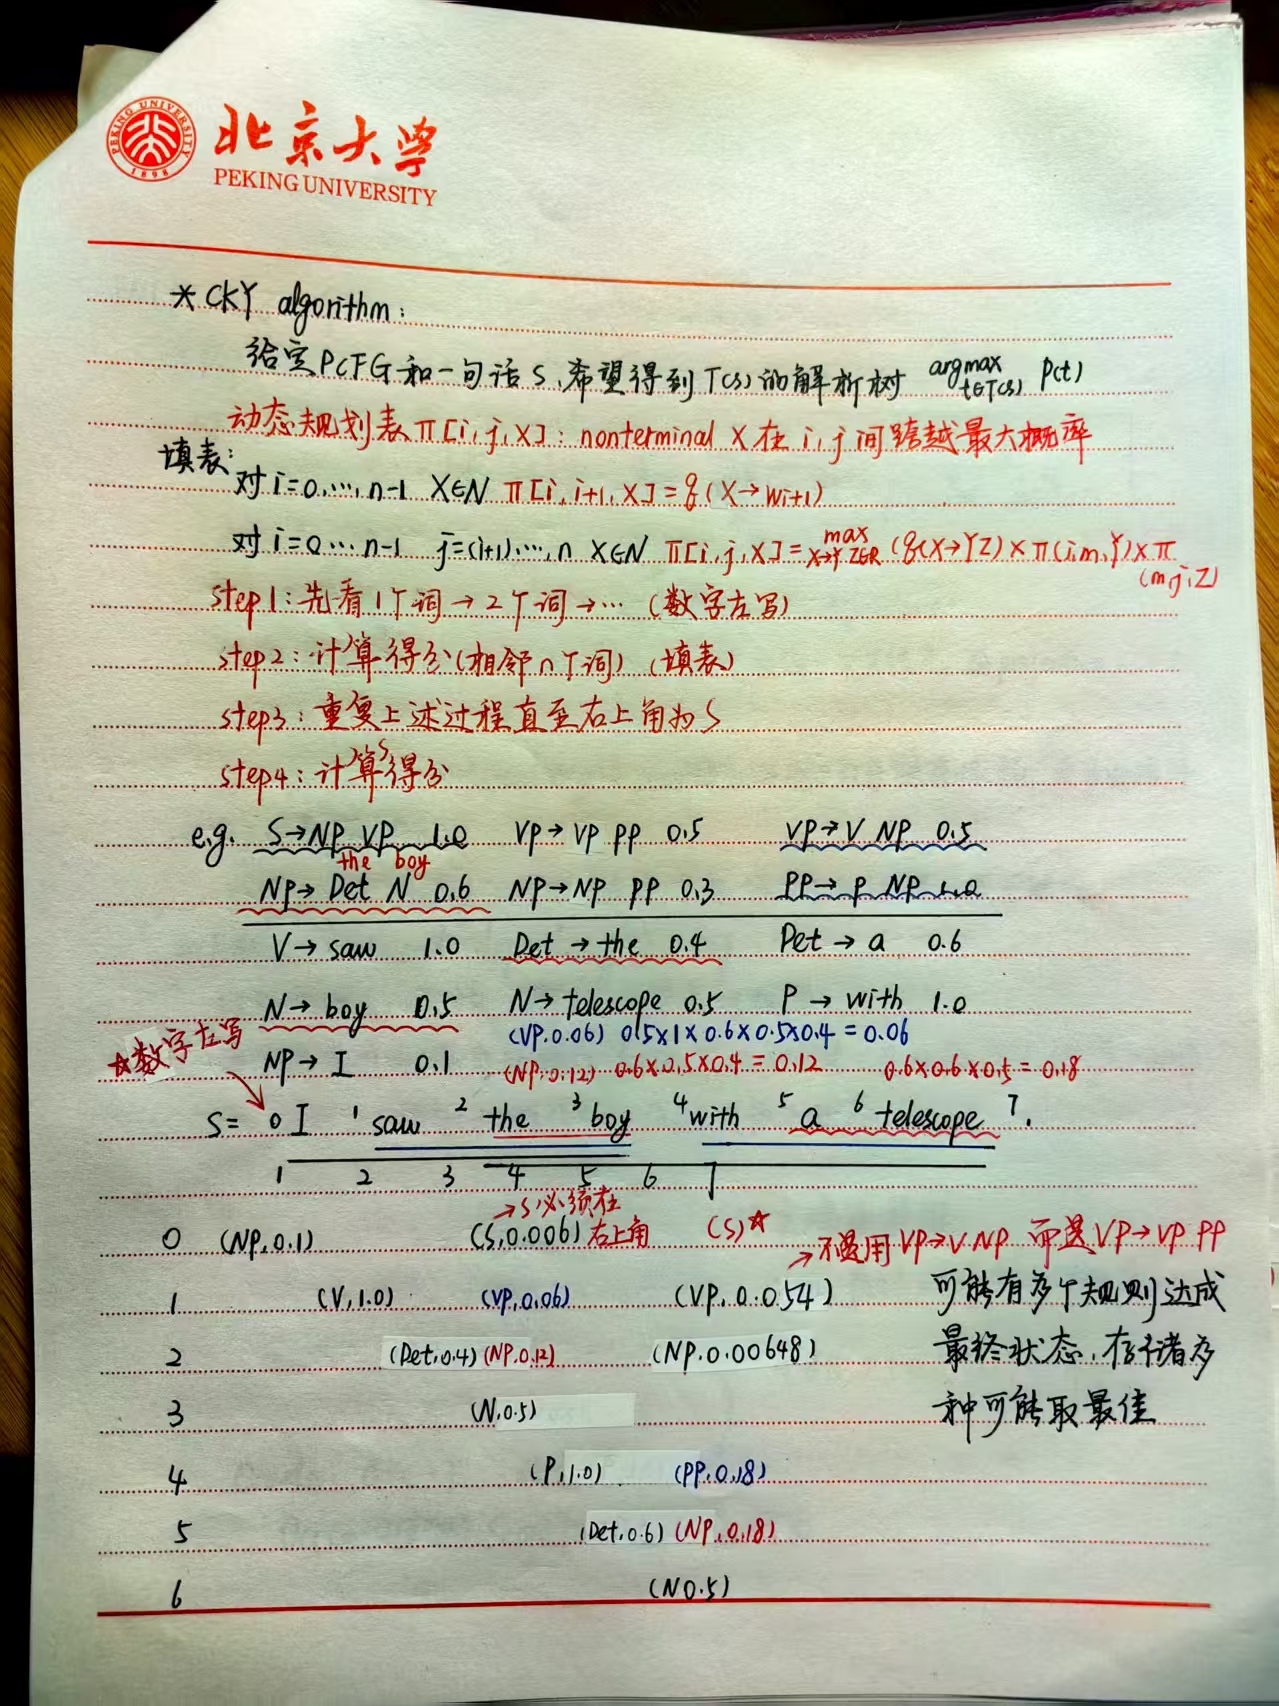 PEKING UNIVERSITY
1898
北京大学
PEKING UNIVERSITY
* CKY algorithm:
给定PCFG和一句话S,希望得到T(s)的解析树 argmax t∈T(s) P(t)
动态规划表π[i,j,X]: nonterminal X在i,j间跨越最大概率
填表:
对i=0,…,n-1 X∈N π[i,i+1,X]=q(X→wi+1)
对i=0…n-1 j=(i+1)…,n X∈N π[i,j,X]=max X→YZ∈R (q(X→YZ)×π(i,m,Y)×π(m,j,Z)
step1:先看1个词→2个词→…(数字左写)
step2:计算得分(相邻n个词)(填表)
step3:重复上述过程直至右上角为S
step4:计算S得分
e.g. S→NP VP 1.0 VP→VP PP 0.5 VP→V NP 0.5
the boy
NP→Det N 0.6 NP→NP PP 0.3 PP→P NP 1.0
V→saw 1.0 Det→the 0.4 Det→a 0.6
N→boy 0.5 N→telescope 0.5 P→with 1.0
☆数字左写 (VP.0.06) 0.5×1×0.6×0.5×0.4=0.06
NP→I 0.1 (NP:0.12) 0.6×0.5×0.4=0.12 0.6×0.6×0.5=0.18
S= 0 I 1 saw 2 the 3 boy 4 with 5 a 6 telescope 7.
1 2 3 4 5 6 7
→S必须在
0 (NP,0.1) (S,0.006) 右上角 (S)☆ →不选用VP→V NP 而选VP→VP PP
1 (V,1.0) (VP,0.06) (VP,0.054) 可能有多个规则达成
2 (Det,0.4) (NP,0.12) (NP,0.00648) 最终状态,存储多
3 (N,0.5) 种可能取最佳
4 (P,1.0) (PP,0.18)
5 (Det,0.6) (NP,0.18)
6 (N0.5)